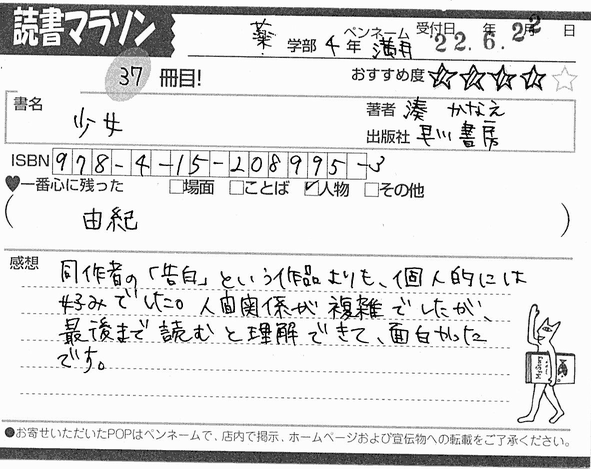 読書マラソン
薬 学部 4年 ペンネーム 満月 受付日 年 月 日 22.6.22
37 冊目! おすすめ度 ★★★★☆
書名 少女
著者 湊 かなえ
出版社 早川書房
ISBN 978-4-15-208995-3
♥一番心に残った □場面 □ことば ☑人物 □その他
( 由紀 )
感想 同作者の「告白」という作品よりも、個人的には
好みでした。人間関係が複雑でしたが、
最後まで読むと理解できて、面白かった
です。
●お寄せいただいたPOPはペンネームで、店内で掲示、ホームページおよび宣伝物への転載をご了承ください。